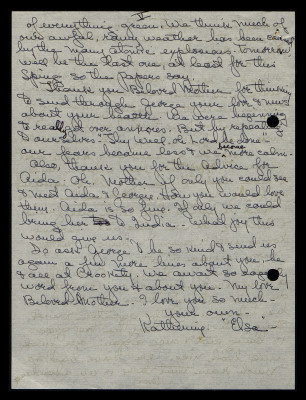 V
of everything green. We think much of
our awful, rainy weather has been caused
by the many atomic explosions. Tomorrow
will be the last one, at least for this
Spring so the Papers say.
Thank you Beloved Mother for thinking
to send through George your love & news
about your health. We were beginning
to really get over anxious. But by repeating
to ourselves: "Thy Will, oh Lord be done"
our fears became less & we more calm.
Also, thank you for the advice for
Aida. Oh, Mother if only you could see
& meet Aida & George. How you would love
them. Aida is so fine. If only we could
bring her to India. What joy this
would give us.
Do ask George to be so kind & send us
again a few more lines about you, he
& all at Crookety. We await so eagerly
word from you & about you. My love
Beloved Mother. I love you so much -
your own -
Katherine "Elsa" -